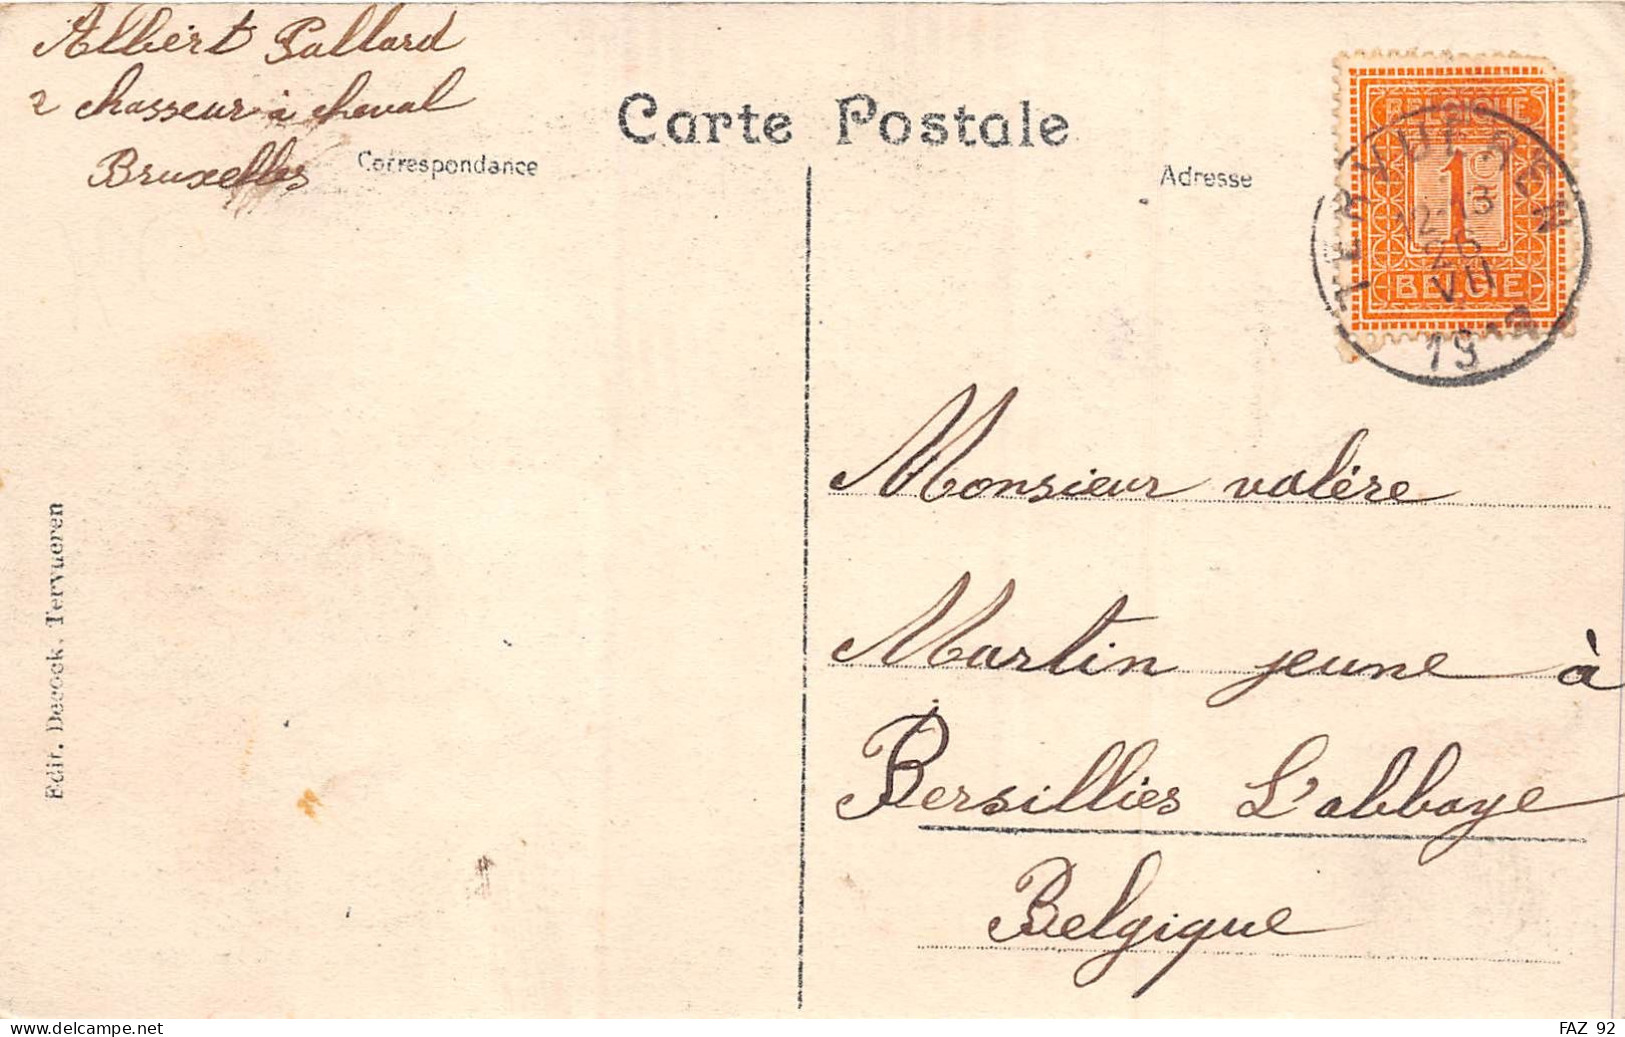 Albert Pallard
2 chasseur à cheval
Bruxelles
Carte Postale
Correspondance
Adresse
BELGIQUE
1c
BELGIE
TERVUEREN
12-13
VII
Monsieur valére
Martin jeune à
Bersillies L'abbaye
Belgique
Edit. Decock. Tervueren
https://www.delcampe.net
FAZ 92